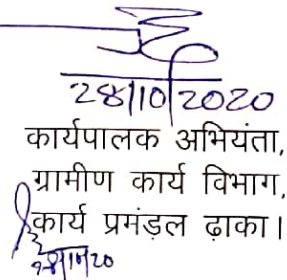 28/10/2020
कार्यपालक अभियंता,
ग्रामीण कार्य विभाग,
कार्य प्रमंड़ल ढ़ाका।
28/10/20